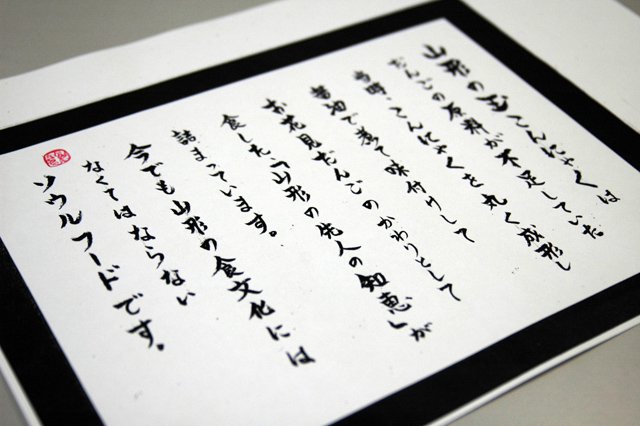 山形の玉こんにゃくは
だんごの原料が不足していた
当時、こんにゃくを丸く成形し
醤油で煮て味付けして
お花見だんごのかわりとして
食した「山形の先人の知恵」が
詰まっています。
今でも山形の食文化には
なくてはならない
ソウルフードです。